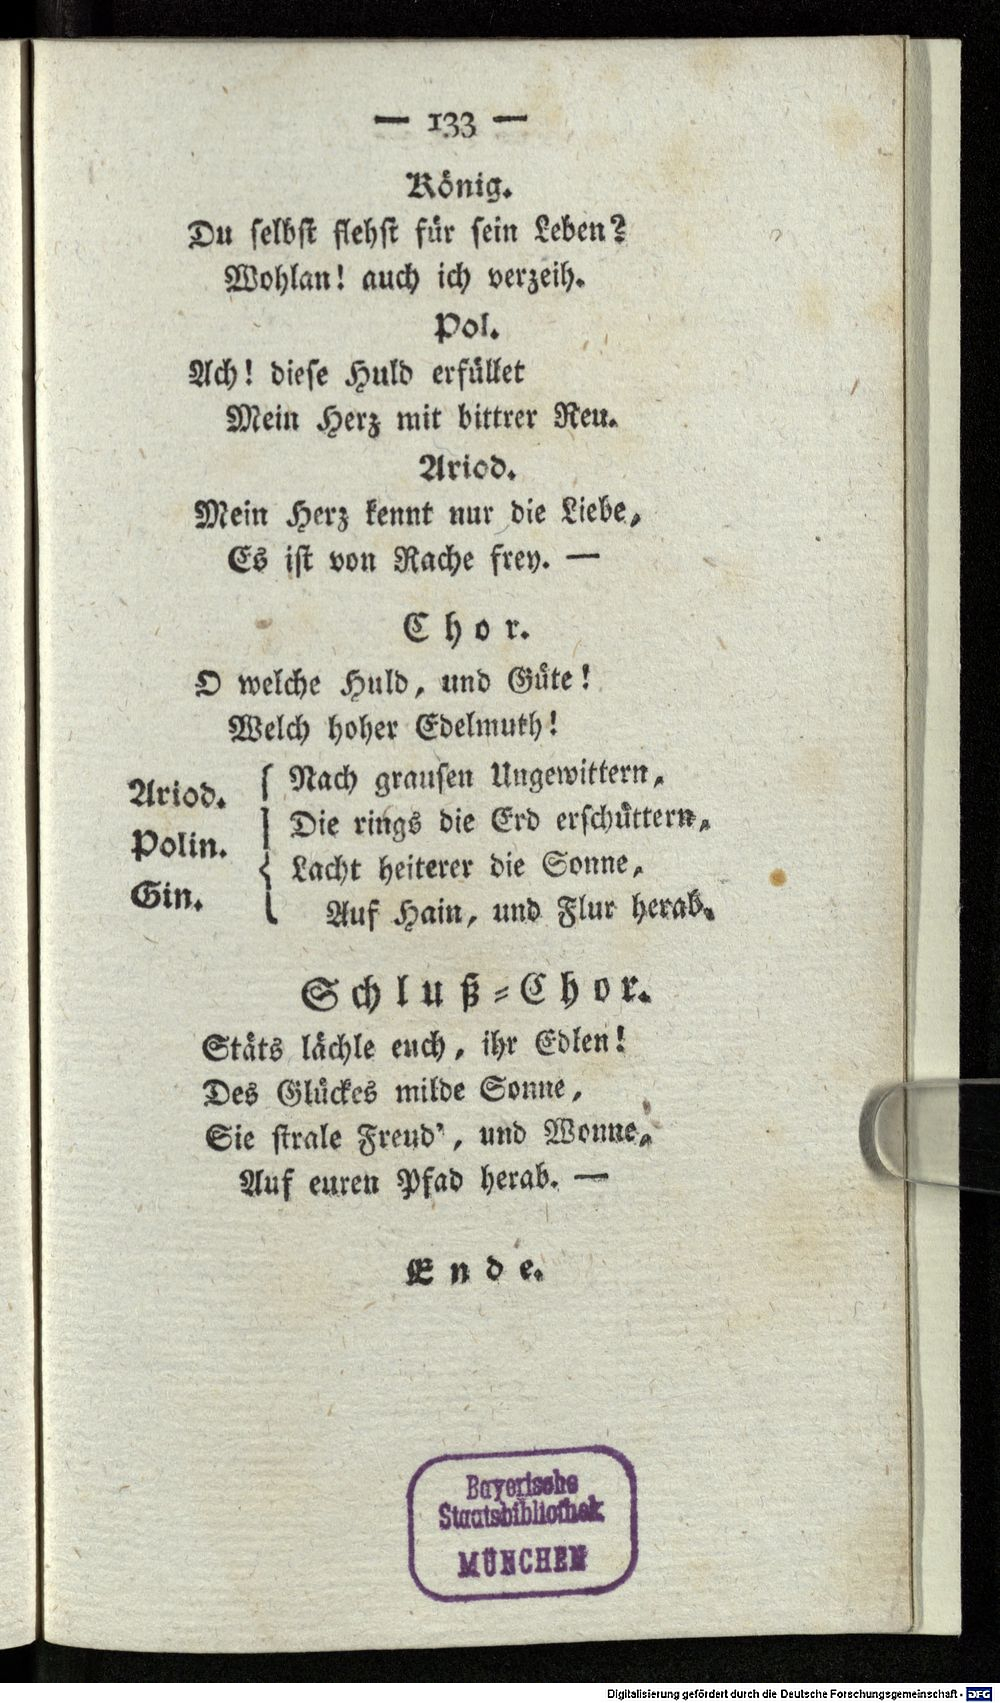 — 133 —
König.
Du selbst flehst für sein Leben?
Wohlan! auch ich verzeih.
Pol.
Ach! diese Huld erfüllet
Mein Herz mit bittrer Reu.
Ariod.
Mein Herz kennt nur die Liebe,
Es ist von Rache frey. —
Chor.
O welche Huld, und Güte!
Welch hoher Edelmuth!
Ariod.
Polin.
Gin.
Nach grausen Ungewittern,
Die rings die Erd erschüttern,
Lacht heiterer die Sonne,
Auf Hain, und Flur herab.
Schluß-Chor.
Stäts lächle euch, ihr Edlen!
Des Glückes milde Sonne,
Sie strale Freud', und Wonne,
Auf euren Pfad herab. —
Ende.
Bayerische
Staatsbibliothek
MÜNCHEN
Digitalisierung gefördert durch die Deutsche Forschungsgemeinschaft - DFG